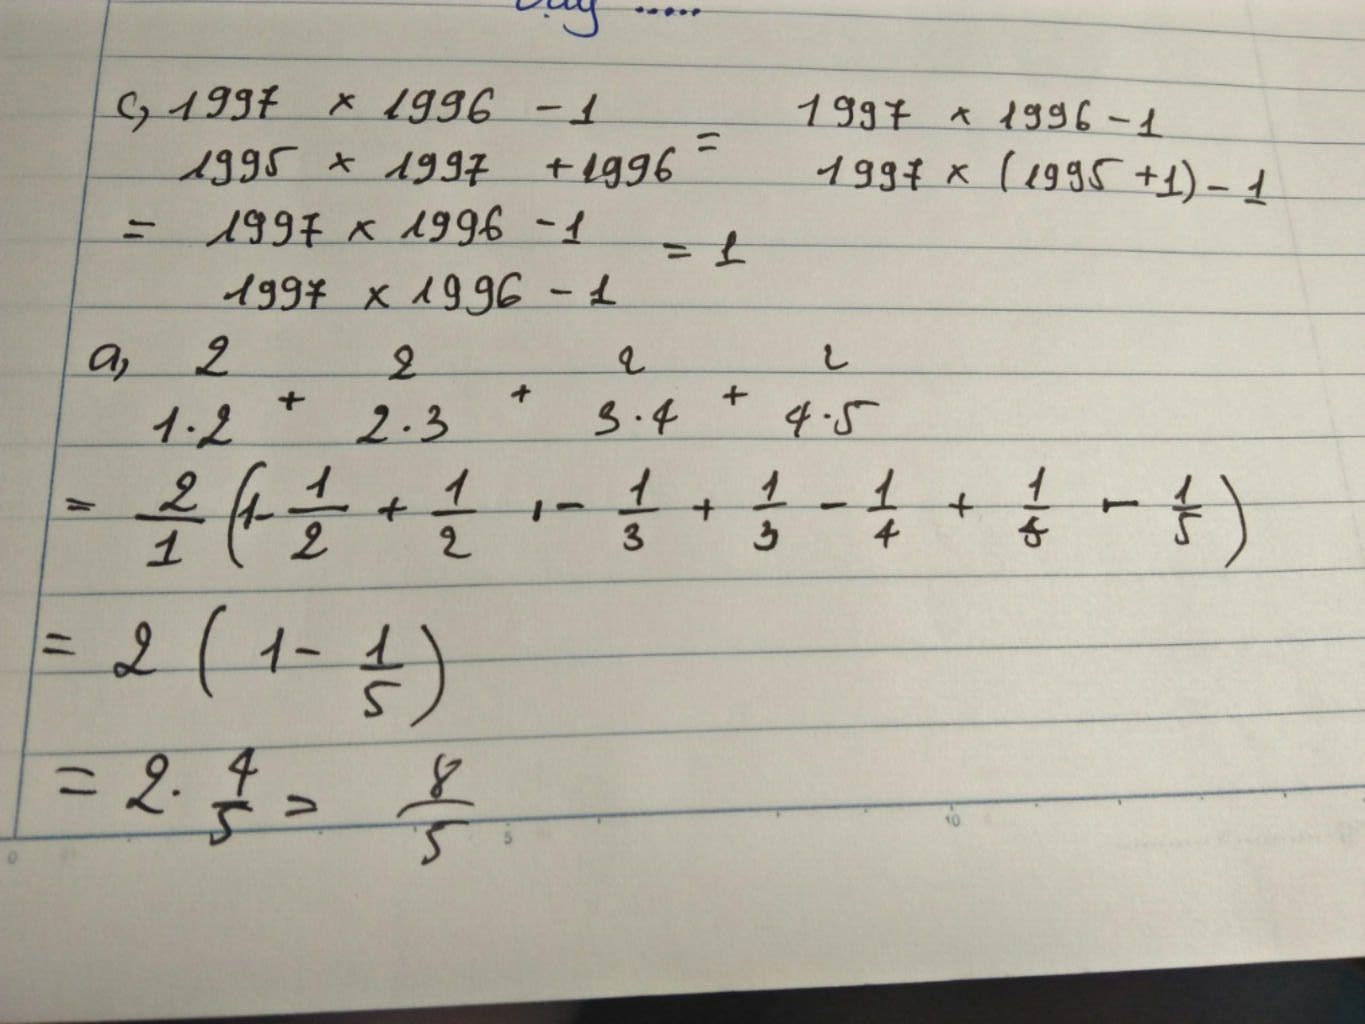 Day .....
c, 1997 × 1996 - 1 = 1997 × 1996 - 1
1995 × 1997 + 1996 1997 × (1995 + 1) - 1
= 1997 × 1996 - 1 = 1
1997 × 1996 - 1
a, 2 + 2 + 2 + 2
1·2 2·3 3·4 4·5
= 2/1 (1 - 1/2 + 1/2 - 1/3 + 1/3 - 1/4 + 1/4 - 1/5)
= 2 (1 - 1/5)
= 2 · 4/5 = 8/5
0 5 10